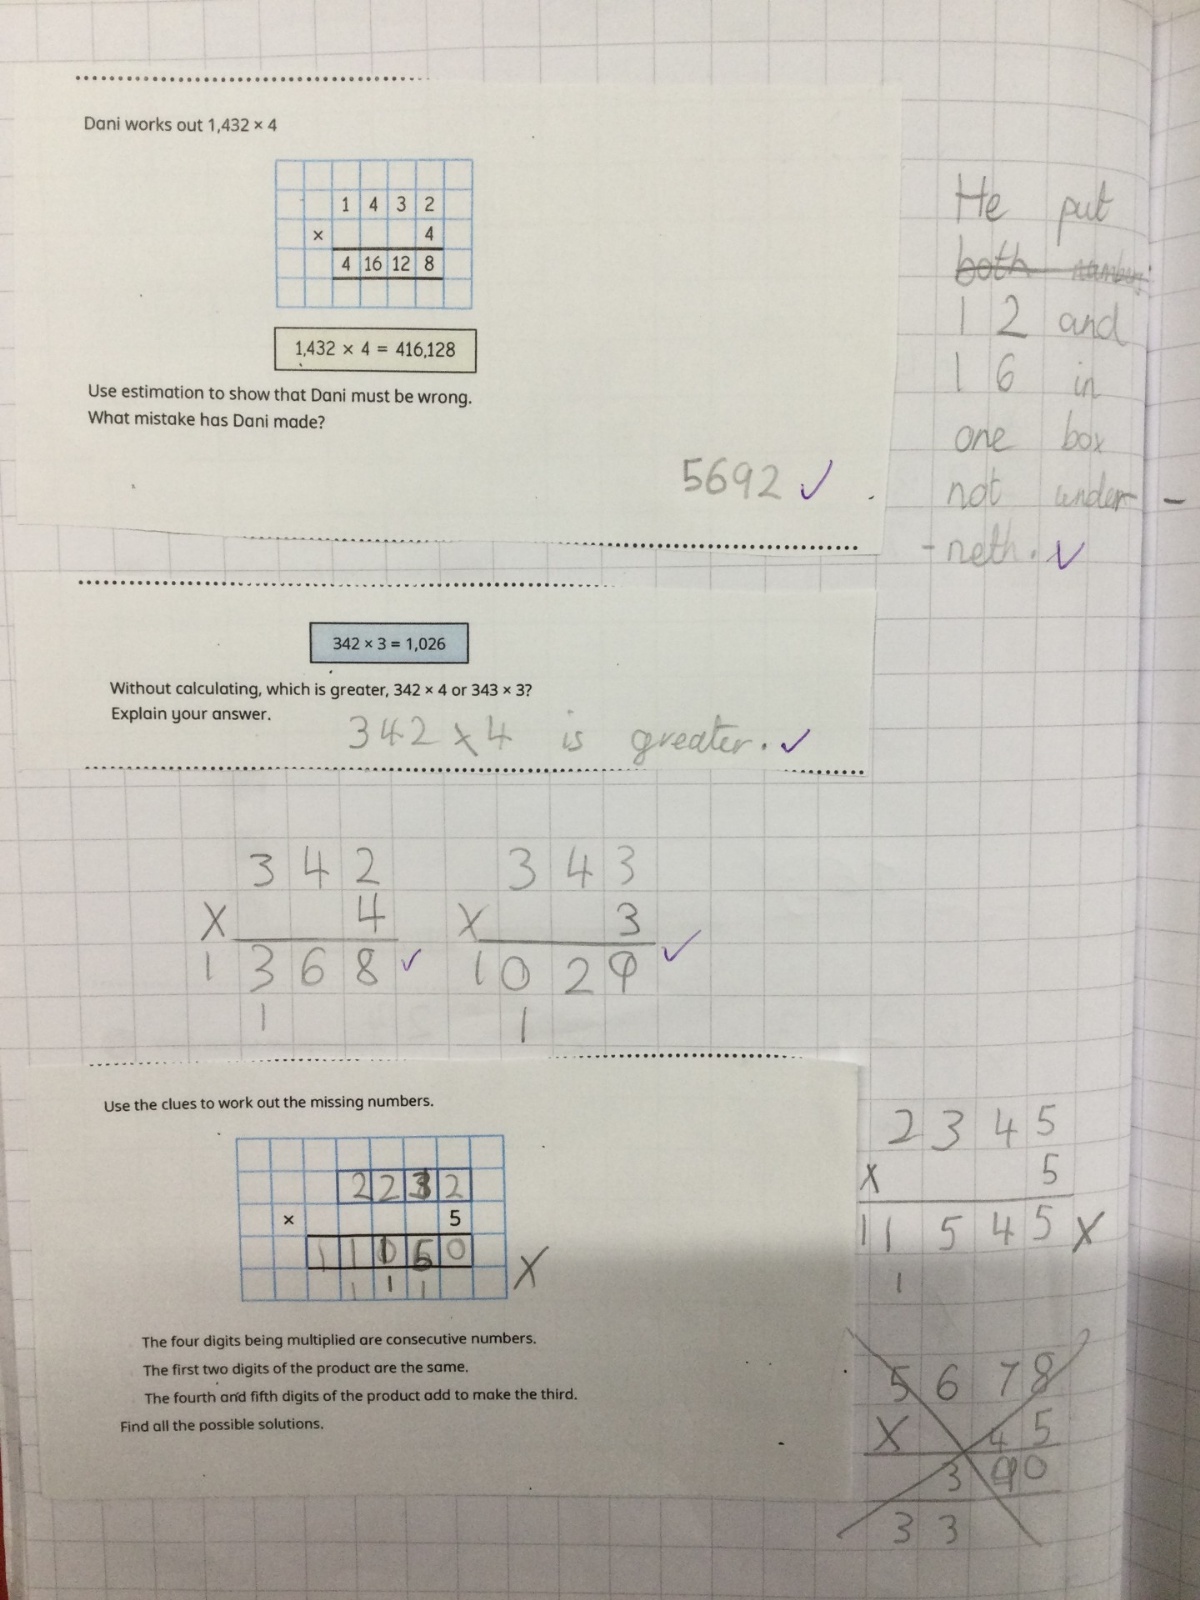 Dani works out 1,432 × 4
1 4 3 2
× 4
4 16 12 8
1,432 × 4 = 416,128
Use estimation to show that Dani must be wrong.
What mistake has Dani made?
5692 ✓
He put
both number
1 2 and
1 6 in
one box
not under-
-neth. ✓
342 × 3 = 1,026
Without calculating, which is greater, 342 × 4 or 343 × 3?
Explain your answer.
342 x 4 is greater. ✓
3 4 2
X 4
1 3 6 8 ✓
1
3 4 3
X 3
1 0 2 9 ✓
1
Use the clues to work out the missing numbers.
2 2 3 2
× 5
1 1 0 6 0 X
1 1 1
The four digits being multiplied are consecutive numbers.
The first two digits of the product are the same.
The fourth and fifth digits of the product add to make the third.
Find all the possible solutions.
2 3 4 5
X 5
1 1 5 4 5 X
1
5 6 7 8
X 4 5
3 9 0
3 3